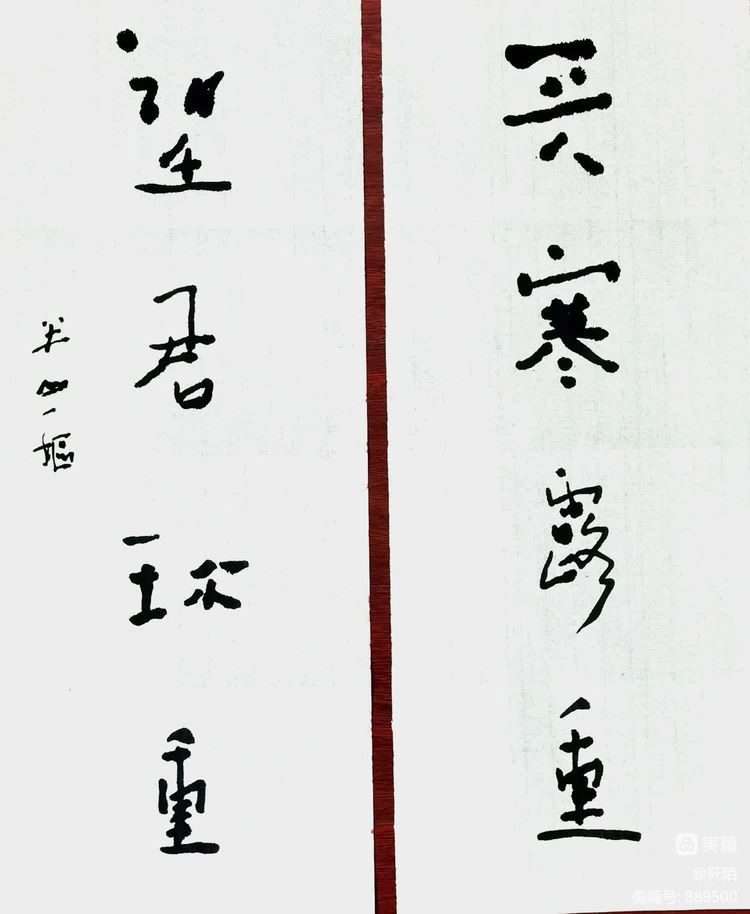 天寒露重
望君珎重
半山一嫗
美篇
@阡陌
美篇号: 889500